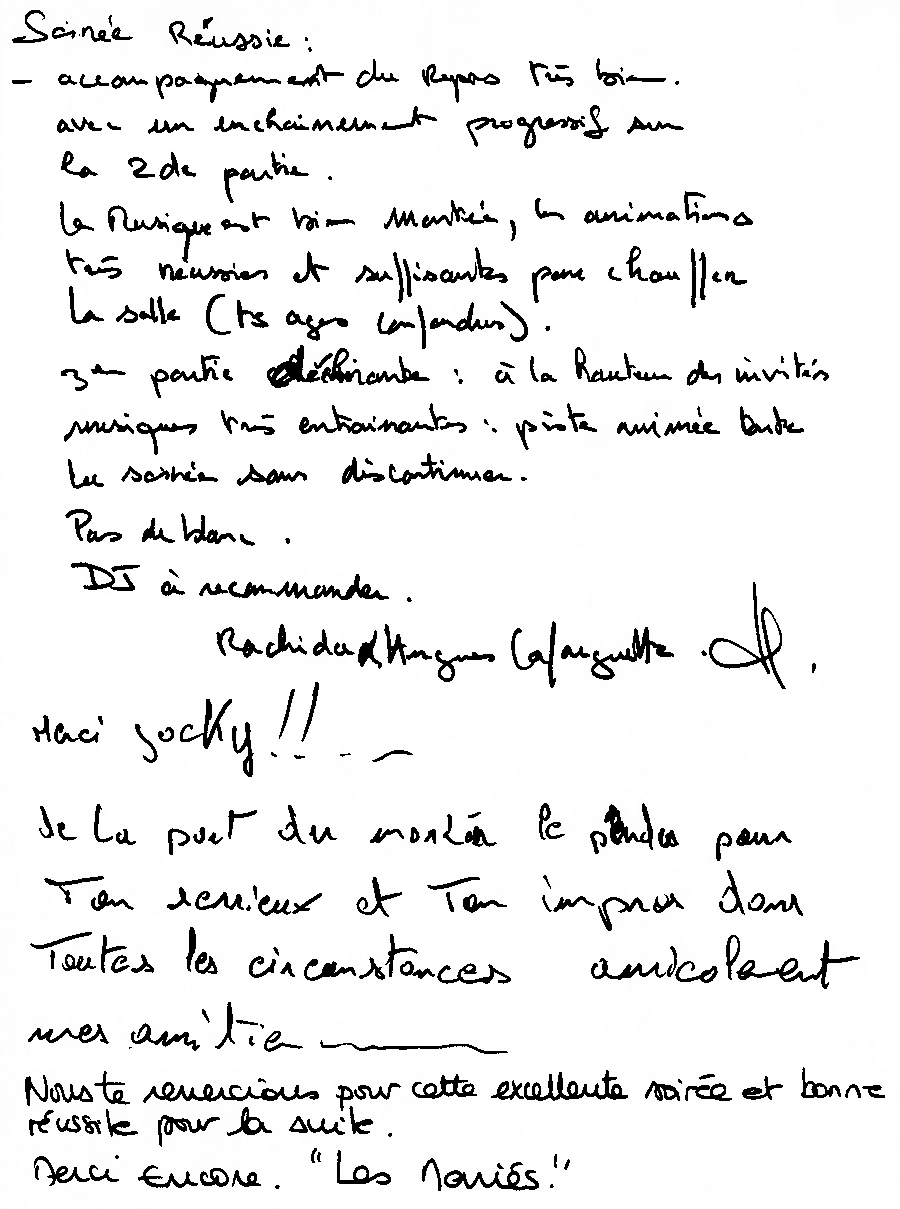 Soirée Réussie :
- accompagnement du repas très bien.
avec un enchainement progressif sur
la 2de partie.
La Musique est bien montée, les animations
très réussies et suffisantes pour chauffer
la salle (ts ages confondus).
3em partie déchirante : à la hauteur des invités
musiques très entrainantes : piste animée toute
la soirée sans discontinuer.
Pas de blanc.
DJ à recommander.
Rachida d'Hugues Lafarguette.
Merci Jocky !!...
de La part du marié le pour
Ton serrieux et Ton impros dans
Toutes les circonstances amicalement
mes amitie
Nous te remercions pour cette excellente soirée et bonne
réussite pour la suite.
Merci Encore. "Les Mariés!"